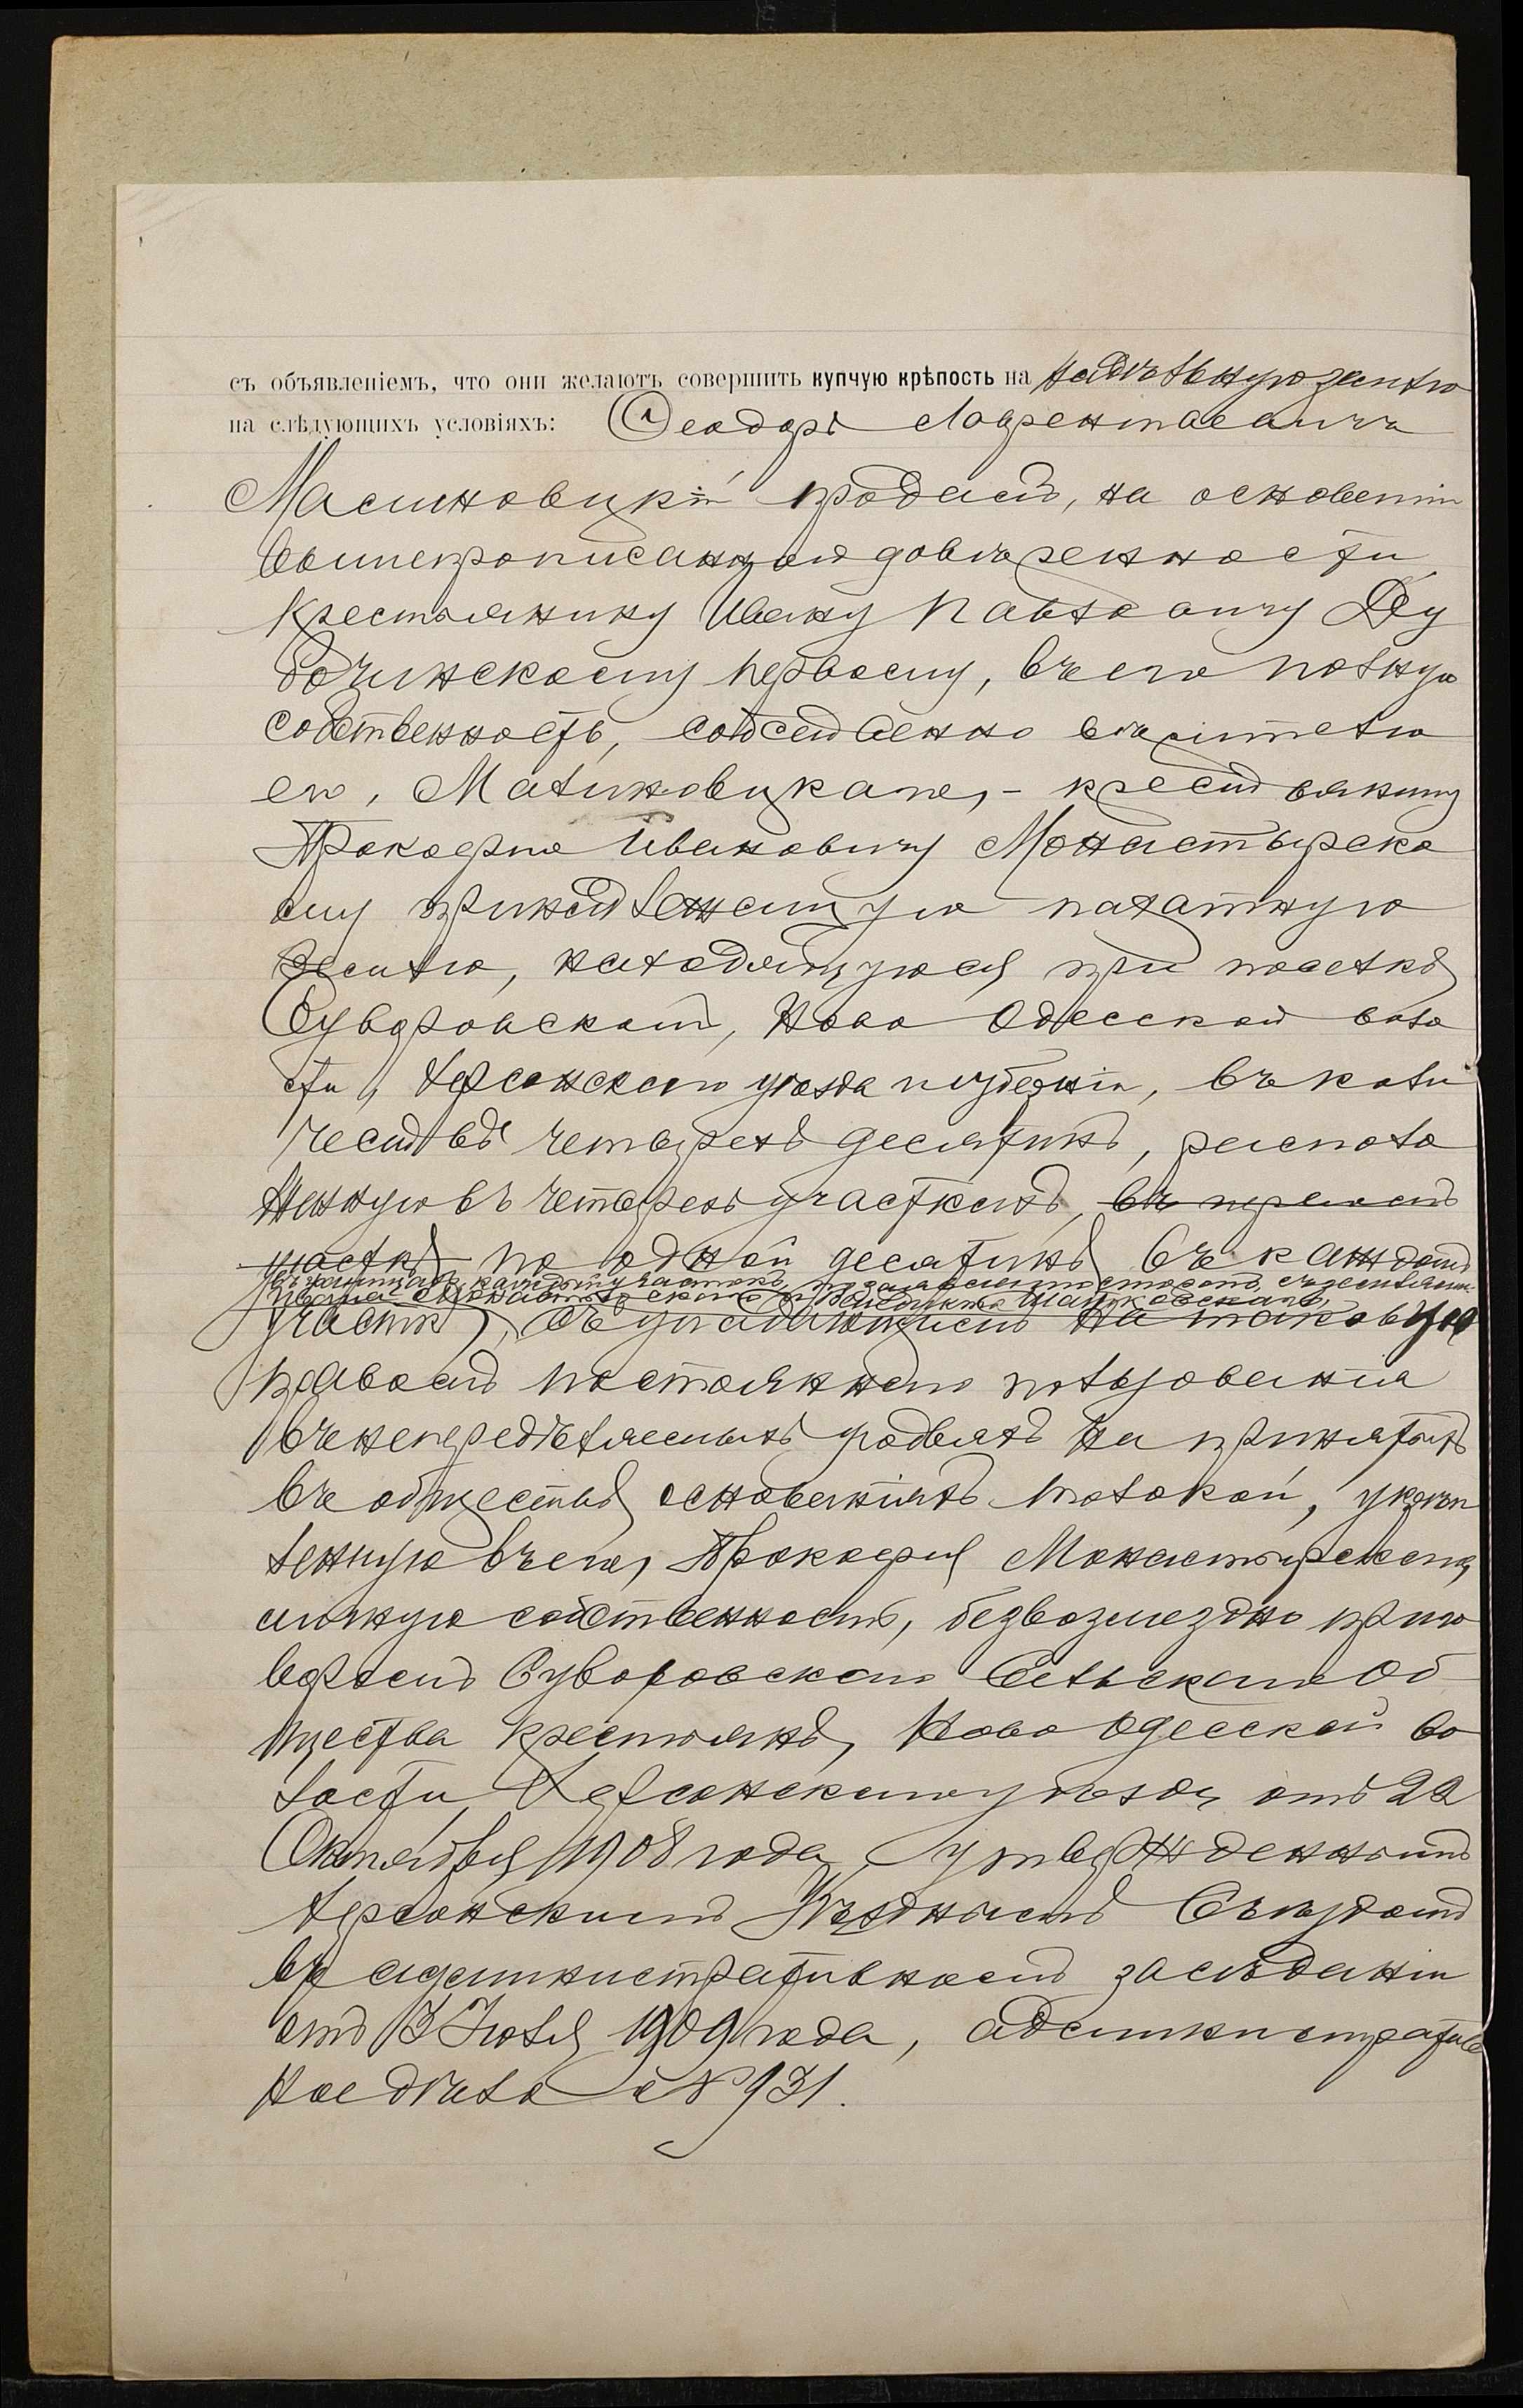 съ объявленіемъ, что они желаютъ совершить купчую крѣпость на надѣльную землю
на слѣдующихъ условіяхъ: Ѳеодоръ Лаврентьевичъ
Малиновскій продалъ, на основаніи
вышепрописанной довѣренности
крестьянину Ивану Павловичу
первому, въ его полную
собственность, собственно вѣрителю
его, Малиновскаго, - крестьянину
Прокофію Ивановичу Монастырско
му принадлежащую пахатную
землю, находящуюся при поселкѣ
Суворовскомъ, Ново Одесской воло
сти, Херсонскаго уѣзда и губерніи, въ коли
чествѣ четырехъ десятинъ, располо
женную въ четырехъ участкахъ, въ первомъ
участкѣ по одной десятинѣ въ каждомъ
въ границахъ, каждый участокъ, съ землями
Ивана и Шатковскаго,
участкѣ, съ упадающимъ на таковую
правомъ постояннаго пользованія
въ непередѣляемыхъ угодьяхъ на принятыхъ
въ обществѣ основаніяхъ толокой, укрѣп
ленную въ его, Прокофія Монастырскаго,
личную собственность, безвозмездно приго
воромъ Суворовскаго Сельскаго Об
щества крестьянъ, Ново Одесской во
лости, Херсонскаго уѣзда, отъ 22
Октября 1908 года, утвержденнымъ
Херсонскимъ Уѣзднымъ Съѣздомъ
въ административномъ засѣданіи
отъ 3 Іюля 1909 года, административ
ное дѣло № 931.